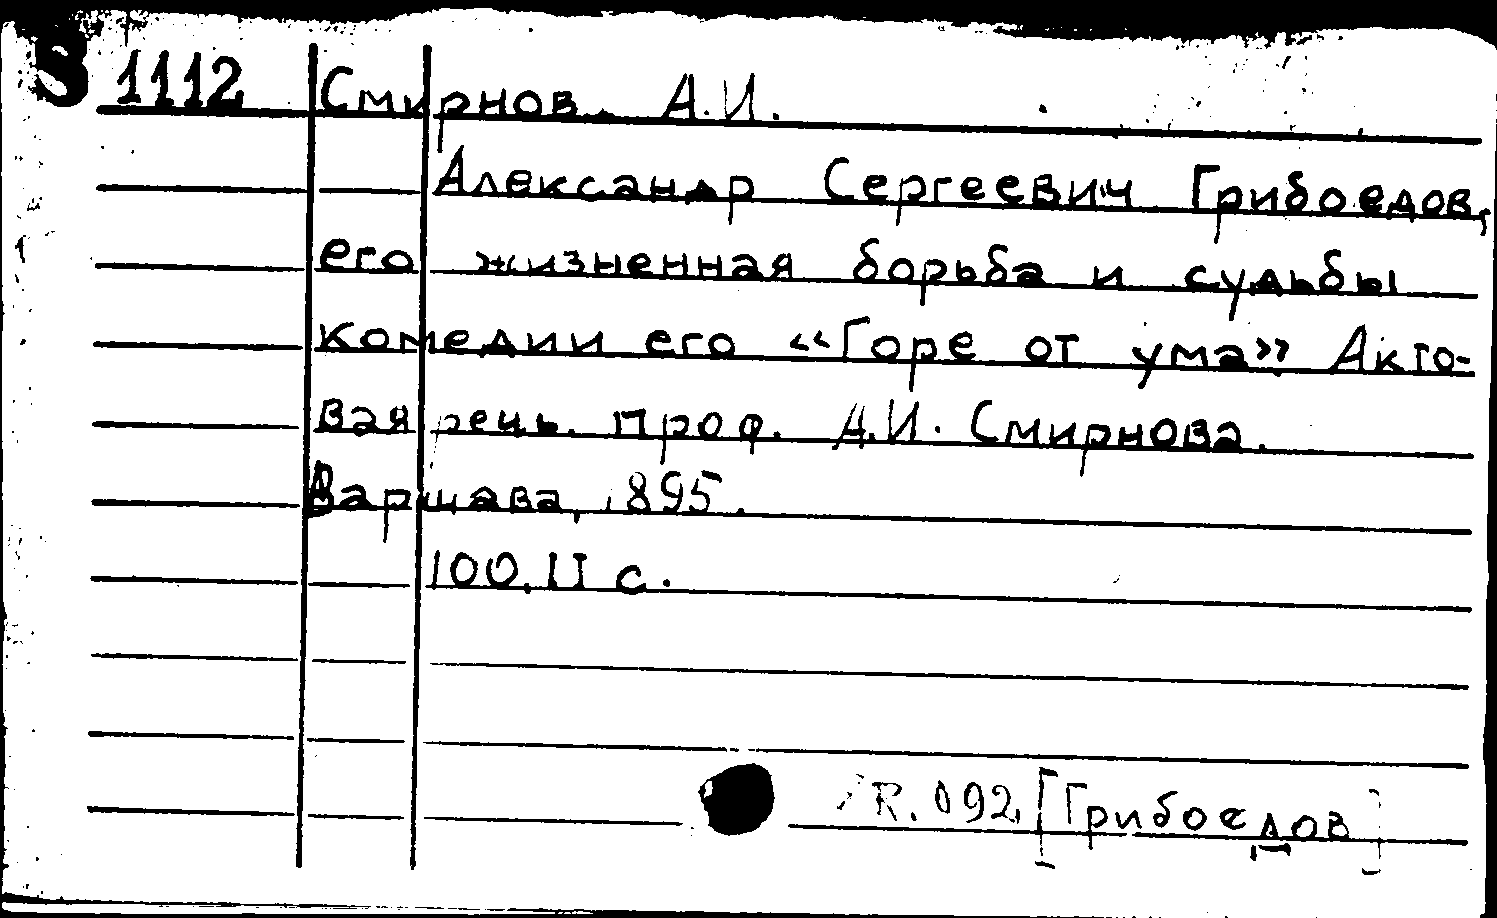 S 1112 Смирнов А.И.
Александр Сергеевич Грибоедов,
его жизненная борьба и судьбы
комедии его «Горе от ума» Акто-
вая речь проф. А.И. Смирнова.
Варшава, 1895.
100, II с.
R. 092 [Грибоедов]